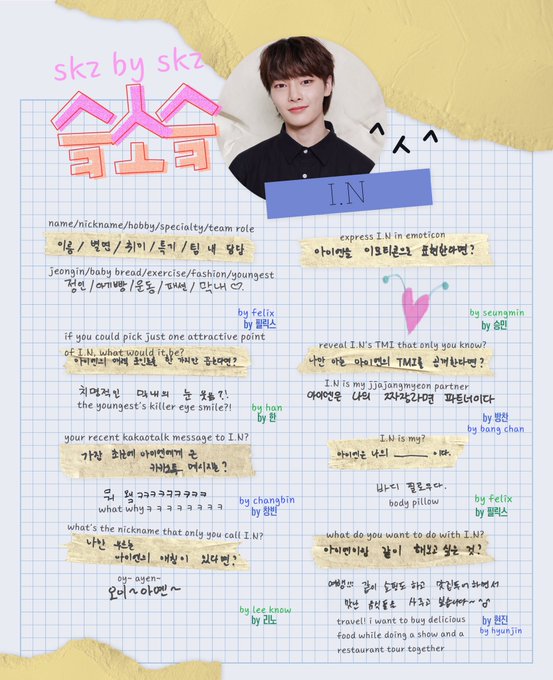 skz by skz
슼소슼
^ㅅ^
I.N
name/nickname/hobby/specialty/team role
이름 / 별명 / 취미 / 특기 / 팀 내 담당
jeongin/baby bread/exercise/fashion/youngest
정인 / 아기빵 / 운동 / 패션 / 막내 ♡.
by felix
by 필릭스
express I.N in emoticon
아이엔을 이모티콘으로 표현한다면?
by seungmin
by 승민
if you could pick just one attractive point
of I.N, what would it be?
아이엔의 매력 포인트를 한 가지만 꼽는다면?
치명적인 막내의 눈 웃음?!
the youngest's killer eye smile?!
by han
by 한
reveal I.N's TMI that only you know?
나만 아는 아이엔의 TMI를 공개한다면?
I.N is my jjajangmyeon partner
아이엔은 나의 짜장라면 파트너이다
by 방찬
by bang chan
your recent kakaotalk message to I.N?
가장 최근에 아이엔에게 온
카카오톡 메시지는?
뭐 왜ㅋㅋㅋㅋㅋㅋㅋㅋ
what whyㅋㅋㅋㅋㅋㅋㅋㅋ
by changbin
by 창빈
I.N is my?
아이엔은 나의 ______ 이다.
바디 필로우다.
body pillow
by felix
by 필릭스
what's the nickname that only you call I.N?
나만 부르는
아이엔의 애칭이 있다면?
oy~ ayen~
오이~아옌~
by lee know
by 리노
what do you want to do with I.N?
아이엔이랑 같이 해보고 싶은 것?
여행!!! 같이 쇼핑도 하고 맛집투어 하면서
맛난 음식들을 사주고 싶습니다~^^
travel! i want to buy delicious
food while doing a show and a
restaurant tour together
by 현진
by hyunjin